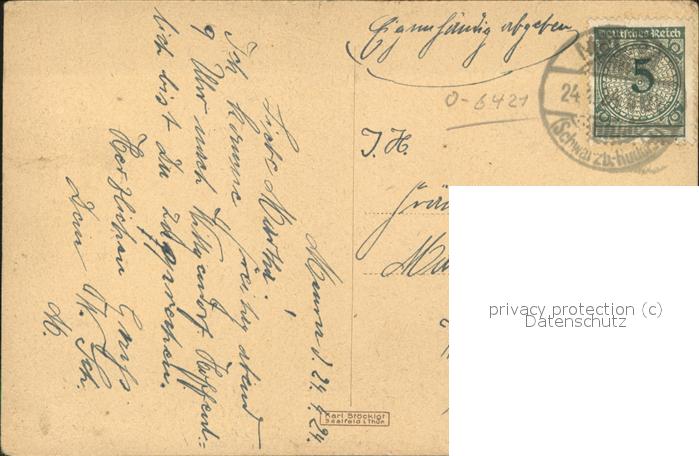 Eigenhändig abgeben
Deutsches Reich
5
24
(Schwarzb.-Rudolst.)
O-6421
I. H.
Frä
Ma
d. 24. 4. 24.
Liebe Martha!
Ich komme Freitag abend
9 Uhr nach Hoffent-
lich bist Du zu sprechen.
Herzlichen Gruß
Dein Th. Sch.
M.
Karl Stöckigt
Saalfeld i. Thür.
privacy protection (c)
Datenschutz